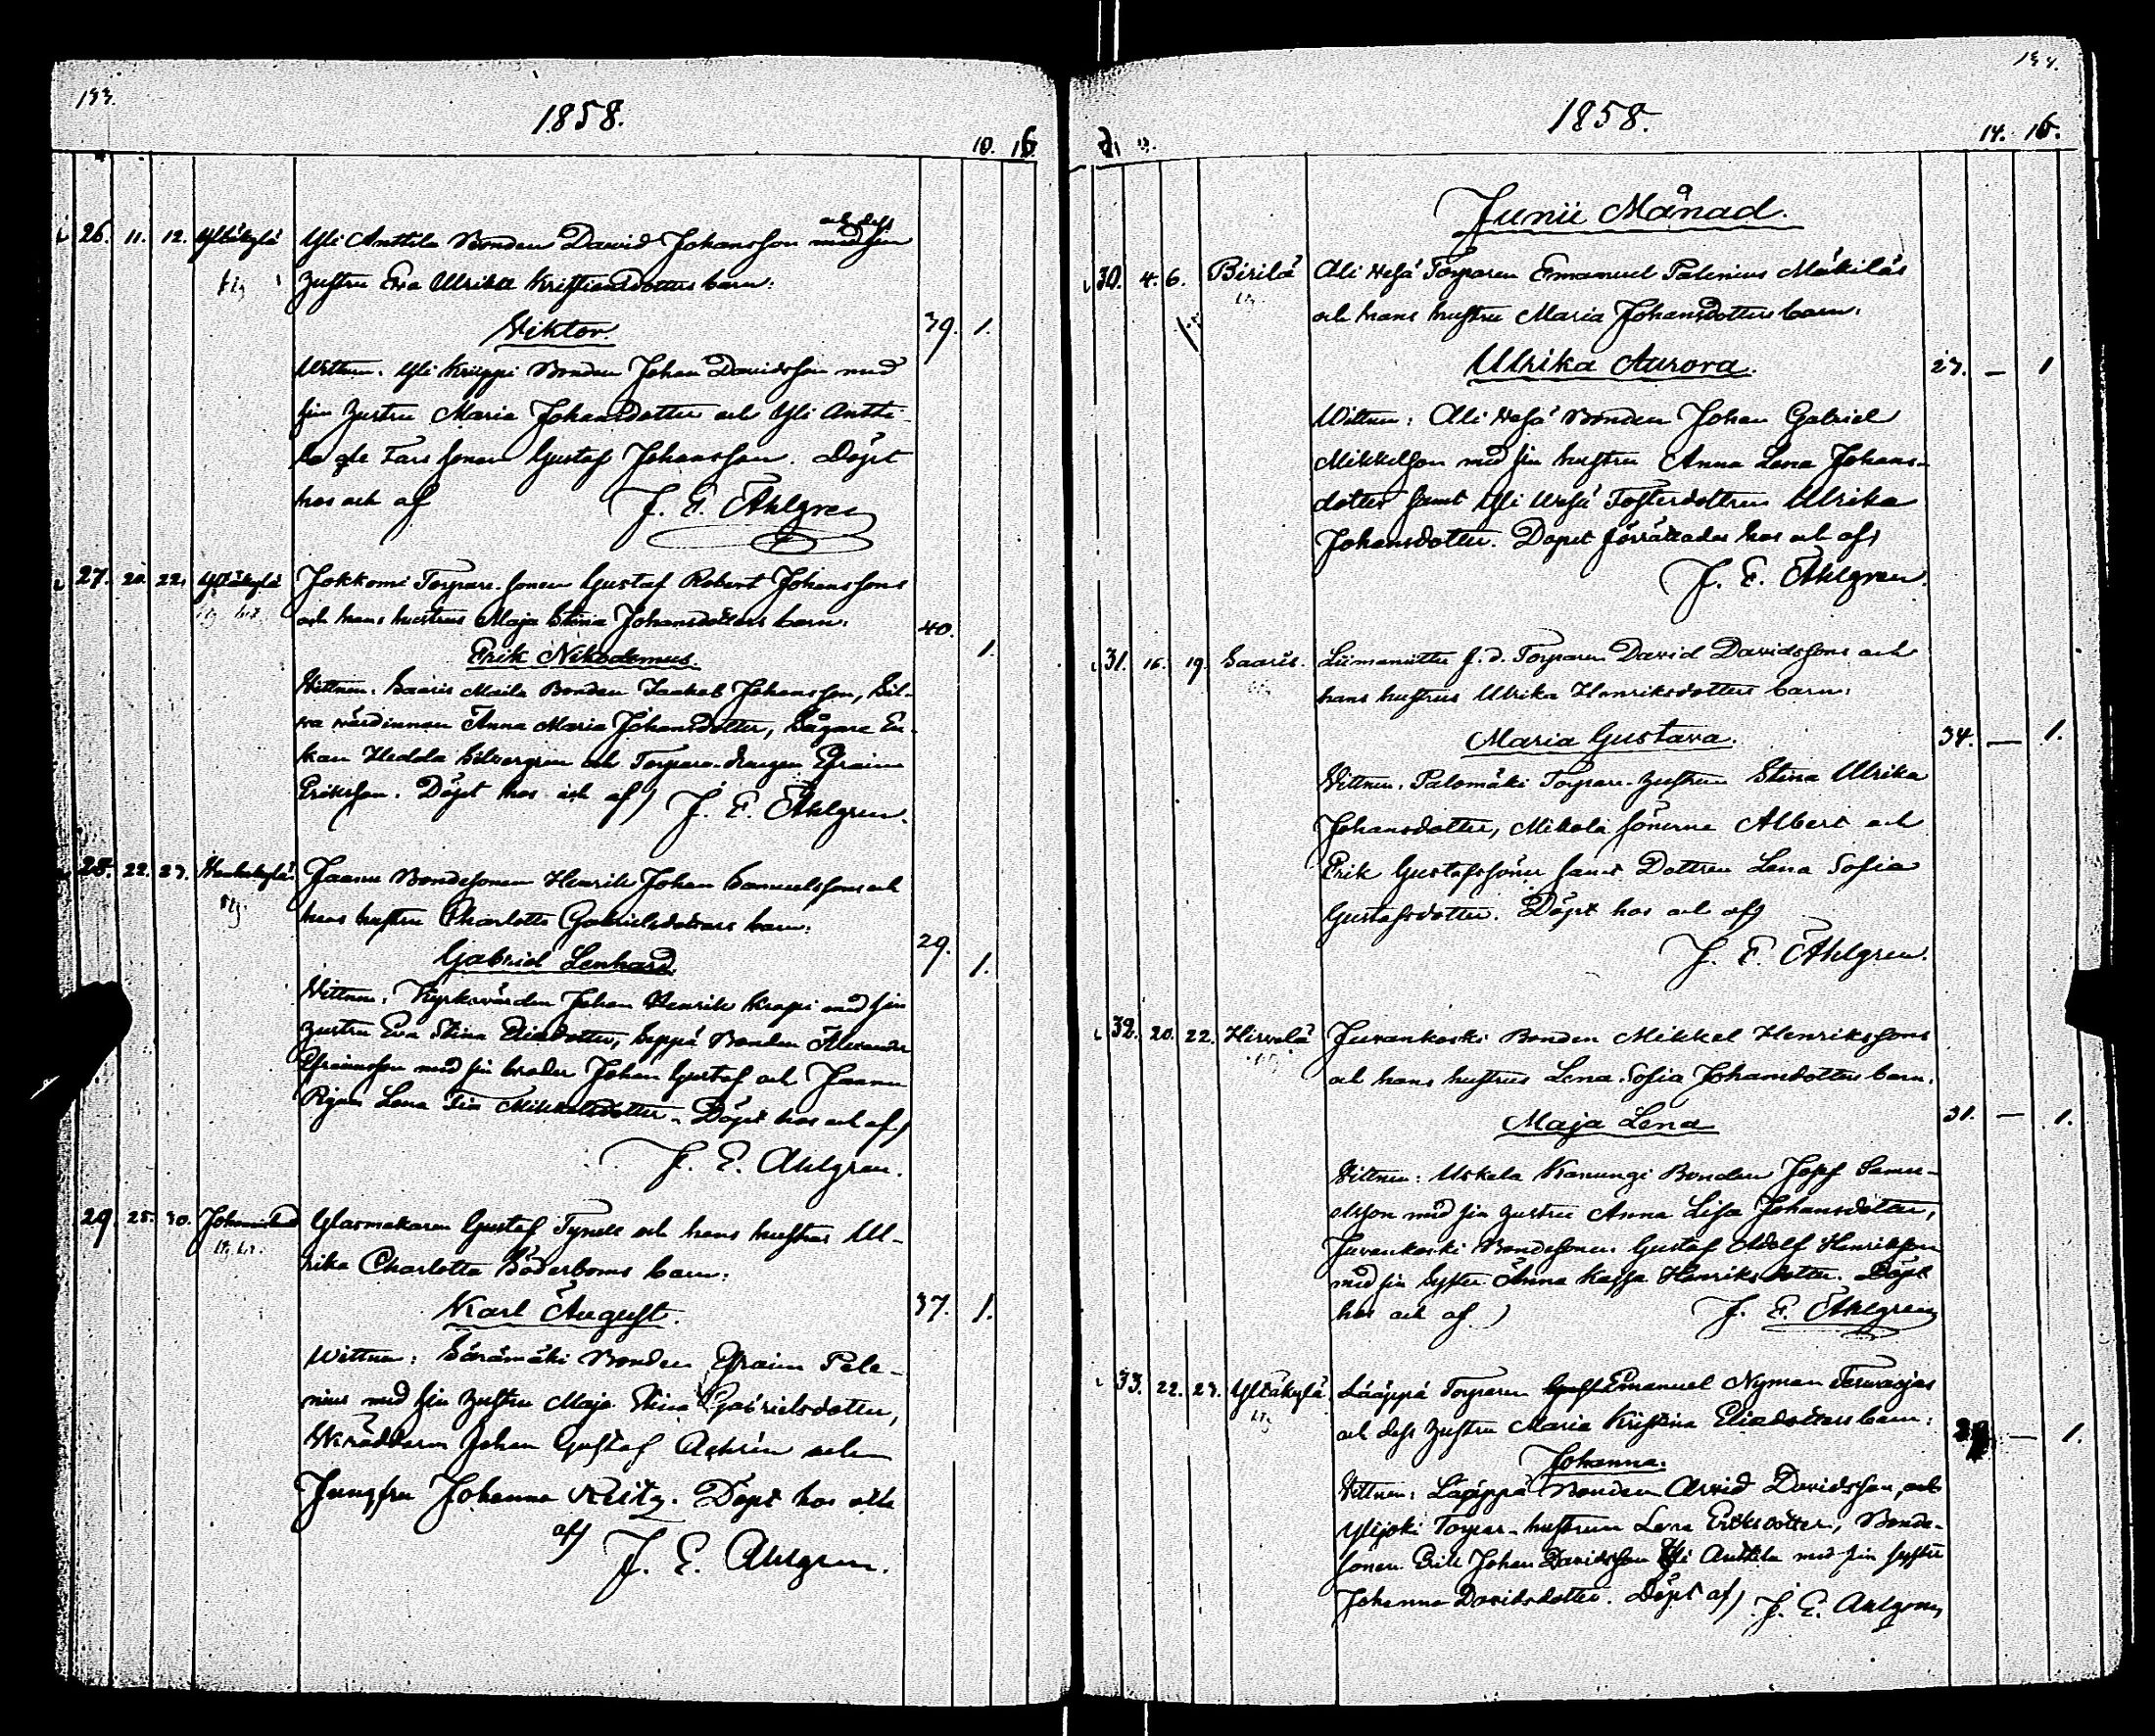 133.
1858.
10. 16.
26. 11. 12. Yltäkylä Yli Anttila Bonden David Johansson med sin
och dess
hustru Eva Ulrika Kristiansdotters barn:
Viktor. 39. 1.
Wittnen. Yli Krieppi Bonden Johan Davidsson med
sin hustru Maria Johansdotter och Yli Antti
la Gustaf Johansson. Döpt
hos och af J. E. Ahlgren
27. 20. 22. Yltäkylä Jokkomi Torpare-sonen Gustaf Robert Johanssons
och hans hustrus Maja Stina Johansdotters barn: 40.
Erik Nikodemus. 1.
Wittnen. Saaris Maila Bonden Jaakob Johansson, Sil-
va värdinnan Anna Maria Johansdotter, Sågare En-
kan Hedda Silvergren och Torpare-drengen Efraim
Eriksson. Döpt hos och af) J. E. Ahlgren.
28. 22. 23. Jaanu Bondesonen Henrik Johan Samuelssons och
hans hustru Charlotta Gabrielsdotters barn: 29.
Gabriel Lenhard. 1.
Wittnen. Kyrkovärden Johan Henrik Krapi med sin
hustru Eva Stina Eliedotter, Seppä Bonden Alexander
Efraimsson med sin broder Johan Gustaf och Jaanu
Pigan Lena Mikkelsdotter. Döpt hos och af)
J. E. Ahlgren.
29. 25. 30. Glasmakaren Gustaf Tynell och hans hustrus Ul-
rika Charlotta Söderboms barn:
Karl August. 37. 1.
Wittnen: Särämäki Bonden Efraim Pale-
nius med sin hustru Maja Stina Gabrielsdotter,
Skräddaren Johan Gustaf Achrén och
Jungfru Johanna Reitz. Döpt hos och
af) J. E. Ahlgren.
134.
1858.
14. 16.
Junii Månad.
30. 4. 6. Pirilä Ali Wesä Torparen Emanuel Palenius Mäkiläs
och hans hustru Maria Johansdotters barn:
Ulrika Aurora. 27. — 1
Wittnen: Ali Wesä Bonden Johan Gabriel
Mikkelson med sin hustru Anna Lena Johans-
dotter samt Yli Wesä Fosterdottren Ulrika
Johansdotter. Dopet förrättades hos och af)
J. E. Ahlgren.
31. 16. 19. Saaris. Liimaniittu f.d. Torparen David Davidssons och
hans hustrus Ulrika Henriksdotters barn:
Maria Gustava. 34. — 1.
Wittnen. Palomäki Torpare-hustrun Stina Ulrika
Johansdotter, Mikola sönerne Albert och
Erik Gustafssöner samt Dottren Lena Sofia
Gustafsdotter. Döpt hos och af)
J. E. Ahlgren.
32. 20. 22. Hirvelä Juvankoski Bonden Mikkel Henrikssons
och hans hustrus Lena Sofia Johansdotters barn.
Maja Lena 31. — 1.
Wittnen: Uskela Kanungi Bonden Josef Samu-
elsson med sin hustru Anna Lisa Johansdotter,
Juvankoski Bondesonen Gustaf Adolf Henriksson
med sin syster Anna Kajsa Henriksdotter. Döpt
hos och af) J. E. Ahlgren
33. 22. 23. Yltäkylä Lääppä Torparen Emanuel Nyman
och dess hustru Maria Kristina Eliedotters barn: — 1.
Johanna.
Wittnen: Lääppä Bonden Arvid Davidsson, och
Ylijoki Torpar-hustrun Lena Eriksdotter, Bonde-
sonen Erik Johan Davidsson Yli Anttila med sin syster
Johanna Davidsdotter. Döpt af) J. E. Ahlgren